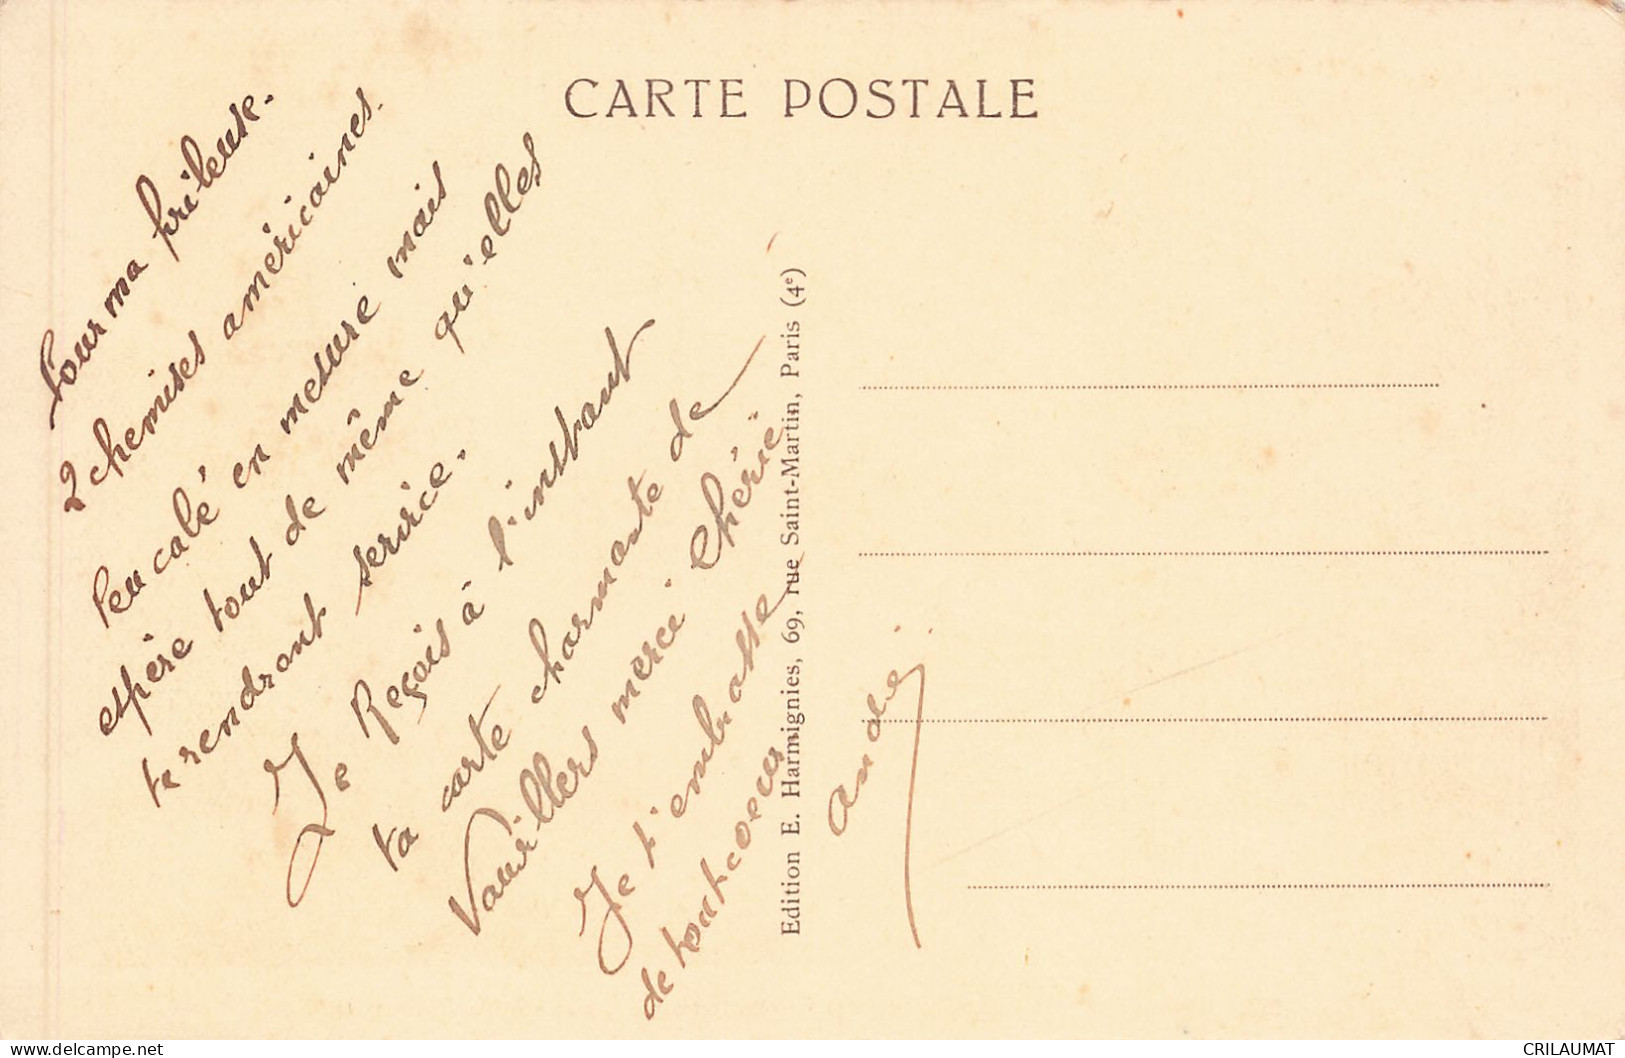 CARTE POSTALE
Pour ma frileuse.
2 chemises américaines.
Peu calé en mesure mais
espère tout de même qu'elles
te rendront service.
Je Reçois à l'instant
ta carte charmante de
Vauvillers merci Chérie
Je t'embrasse
de tout coeur.
André
Edition E. Harmignies, 69, rue Saint-Martin, Paris (4e)
www.delcampe.net
CRILAUMAT